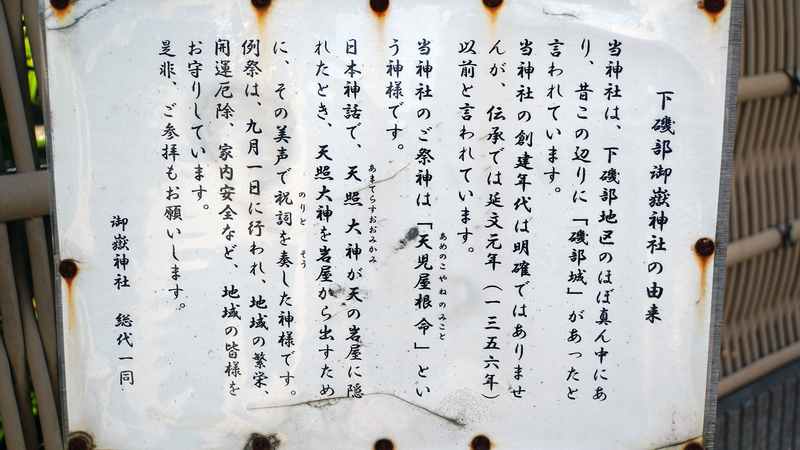 下磯部御嶽神社の由来
当神社は、下磯部地区のほぼ真ん中にあ
り、昔この辺りに「磯部城」があったと
言われています。
当神社の創建年代は明確ではありませ
んが、伝承では延文元年（一三五六年）
以前と言われています。
当神社のご祭神は「天児屋根命」とい
あめのこやねのみこと
う神様です。
日本神話で、天照大神が天の岩屋に隠
あまてらすおおみかみ
れたとき、天照大神を岩屋から出すため
に、その美声で祝詞を奏した神様です。
のりと そう
例祭は、九月一日に行われ、地域の繁栄、
開運厄除、家内安全など、地域の皆様を
お守りしています。
是非、ご参拝もお願いします。
御嶽神社 総代一同